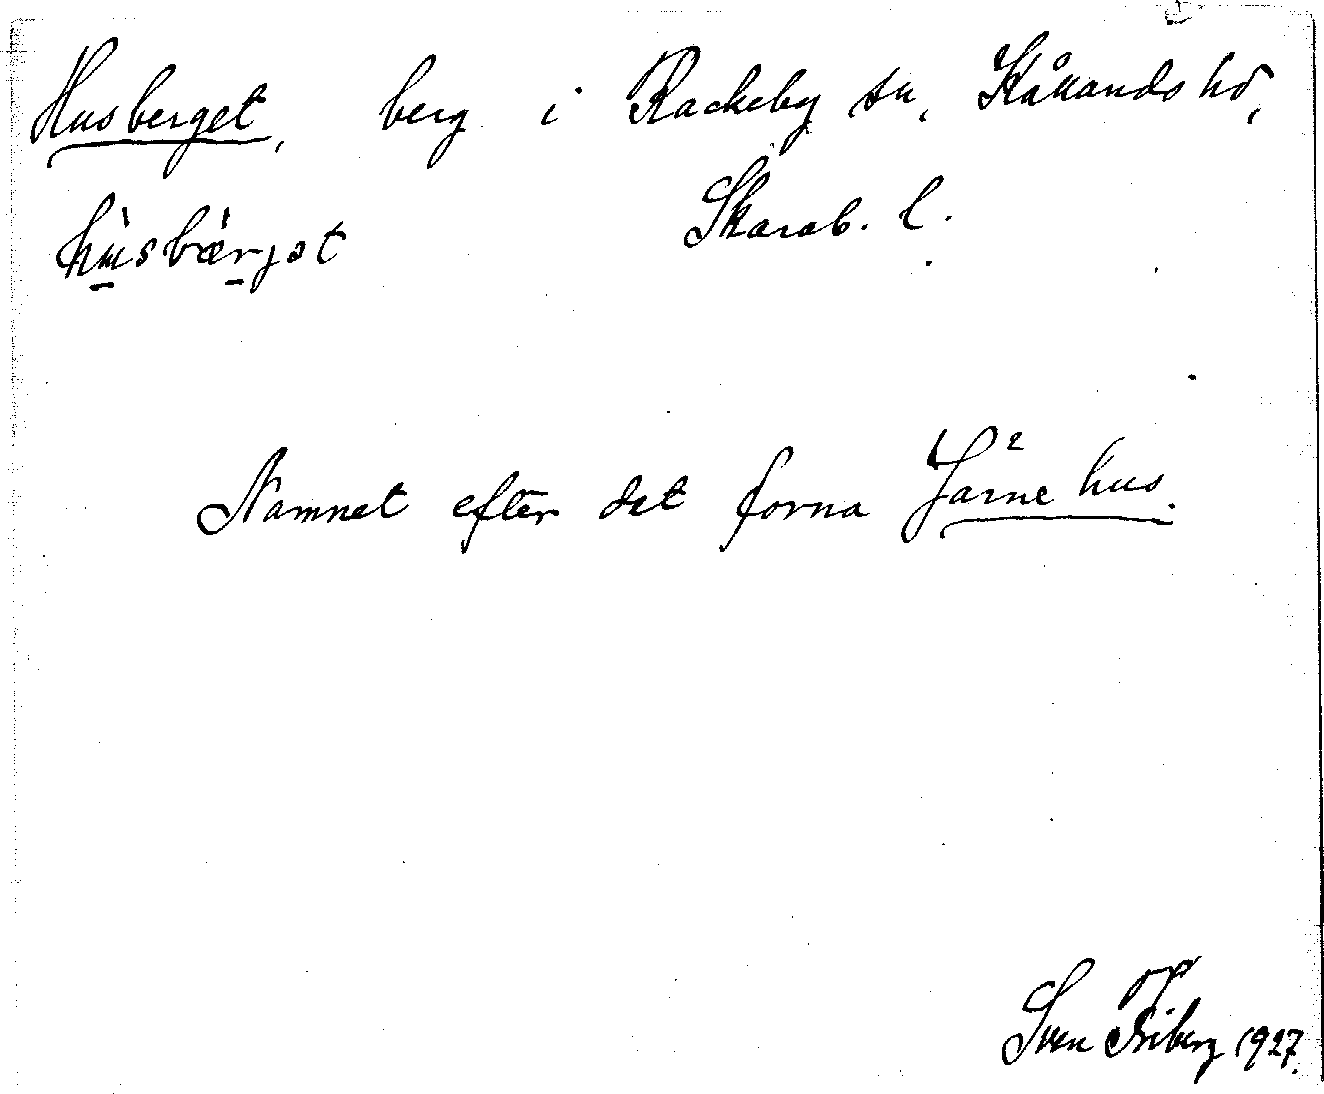 Husberget, berg i Rackeby sn, Kållands hd,
Skarab. l.
hùsbærjət
Namnet efter det forna Järne hus.
Sven Friberg 1927.